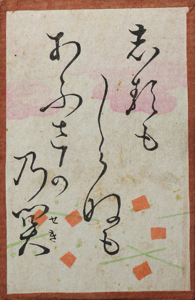 志るも
しらぬも
あふさかの
乃関
せき